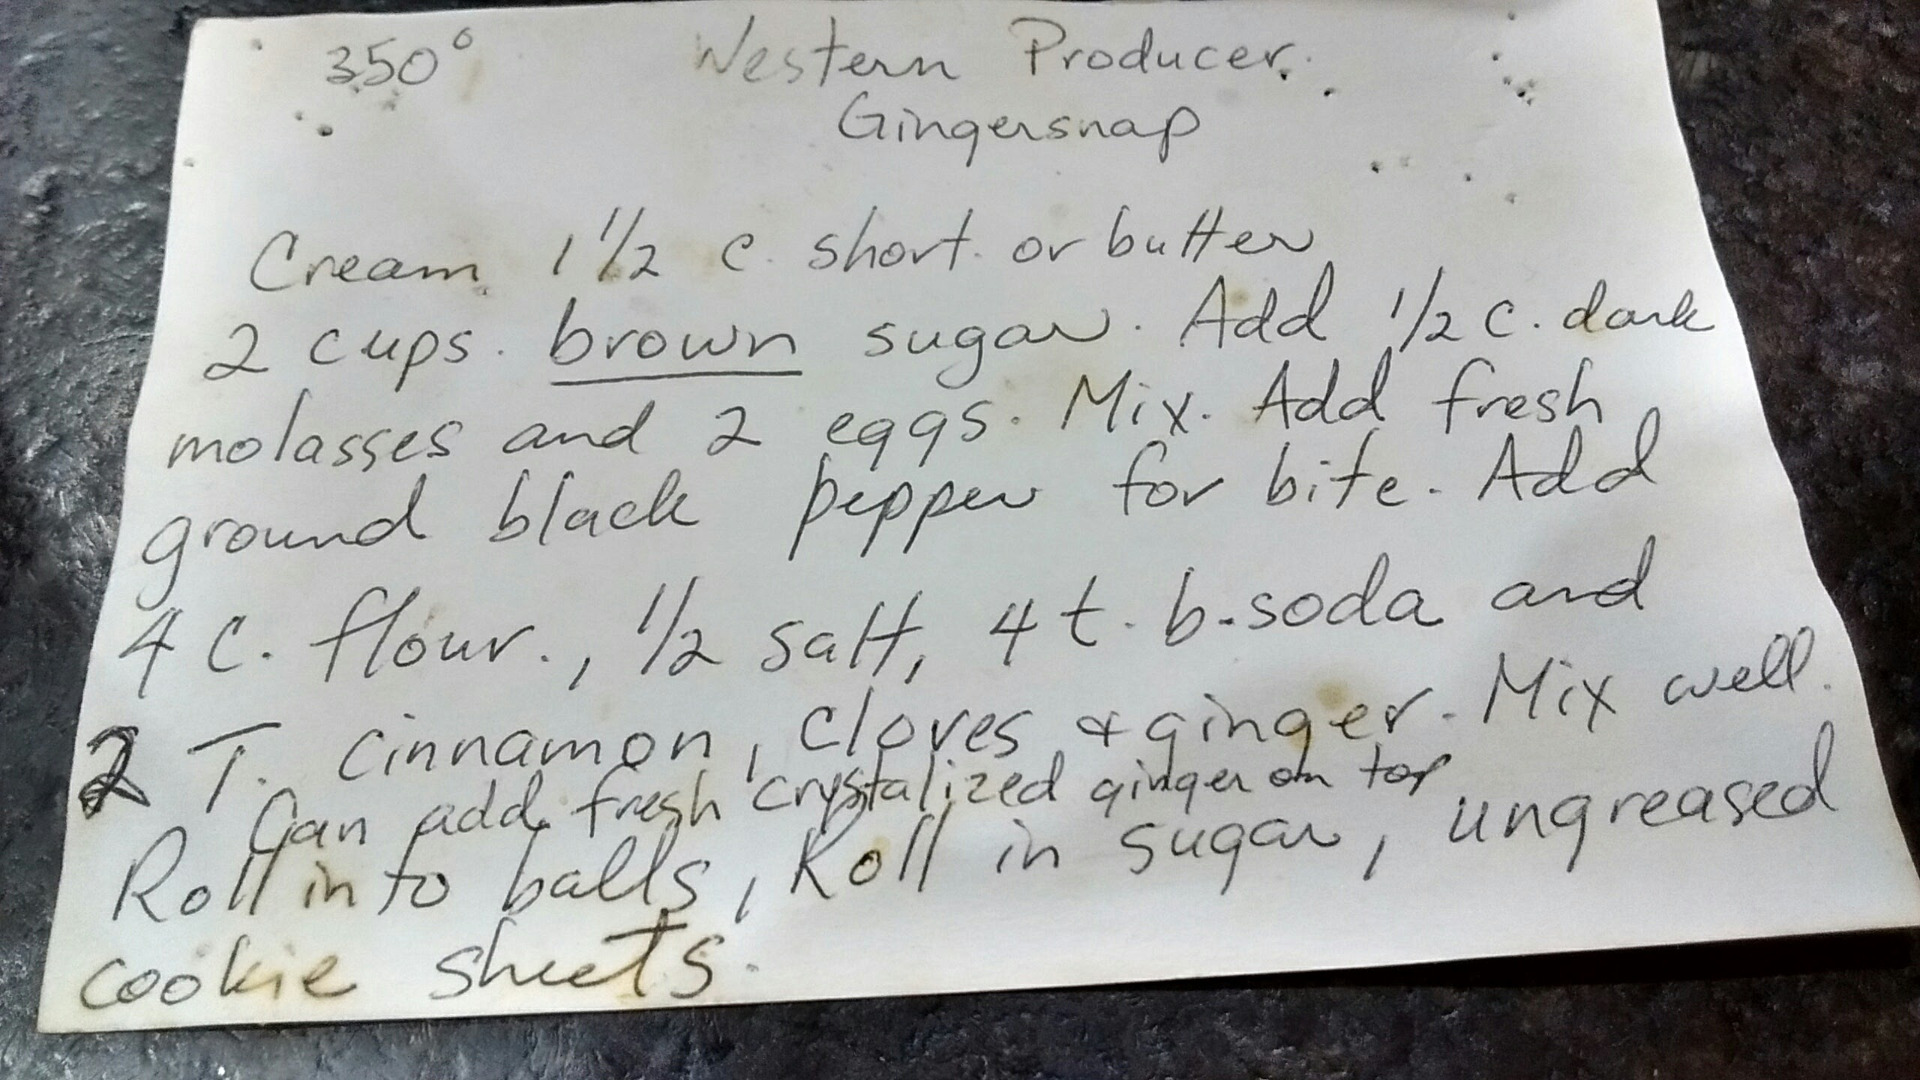 350° Western Producer.
Gingersnap
Cream 1 1/2 c. short. or butter
2 cups. brown sugar. Add 1/2 c. dark
molasses and 2 eggs. Mix. Add fresh
ground black pepper for bite. Add
4 C. flour., 1/2 salt, 4 t. b.soda and
2 T. cinnamon, cloves & ginger. Mix well.
Can add fresh crystalized ginger on top
Roll into balls, Roll in sugar, ungreased
cookie sheets.